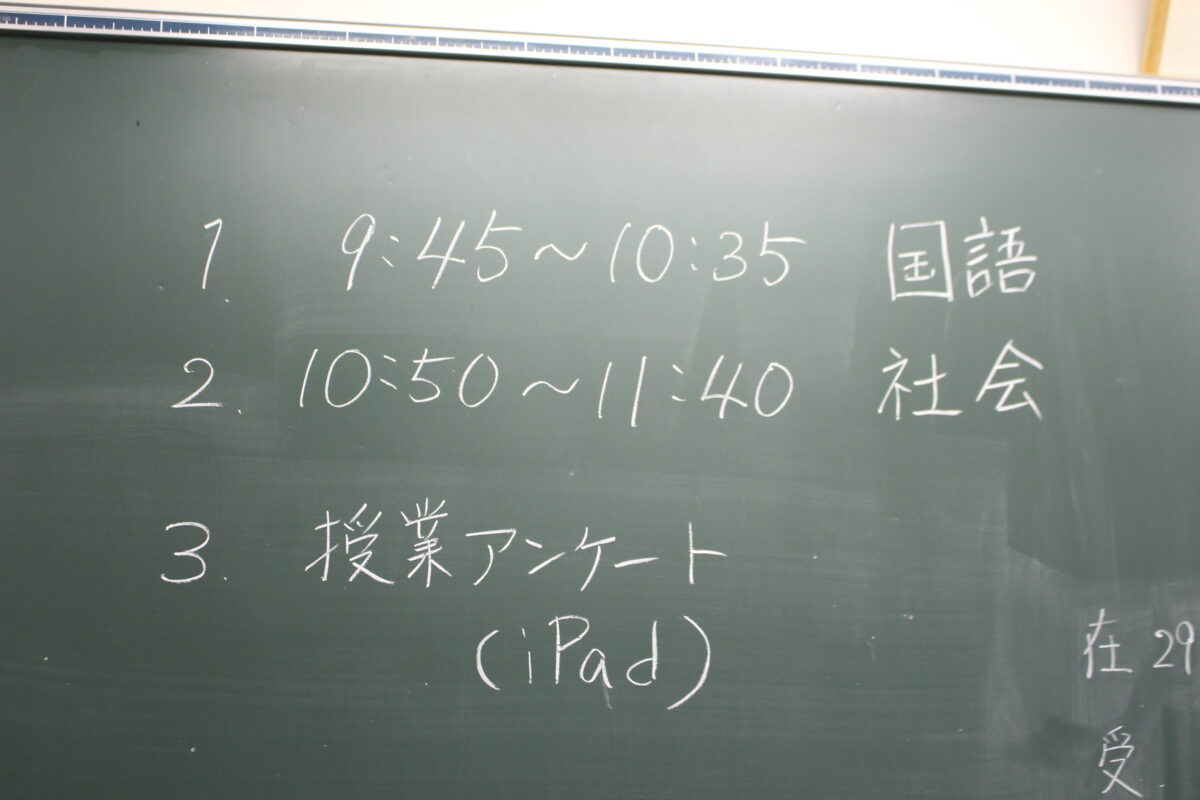 1. 9:45～10:35 国語
2. 10:50～11:40 社会
3. 授業アンケート
(iPad)
在 29
受